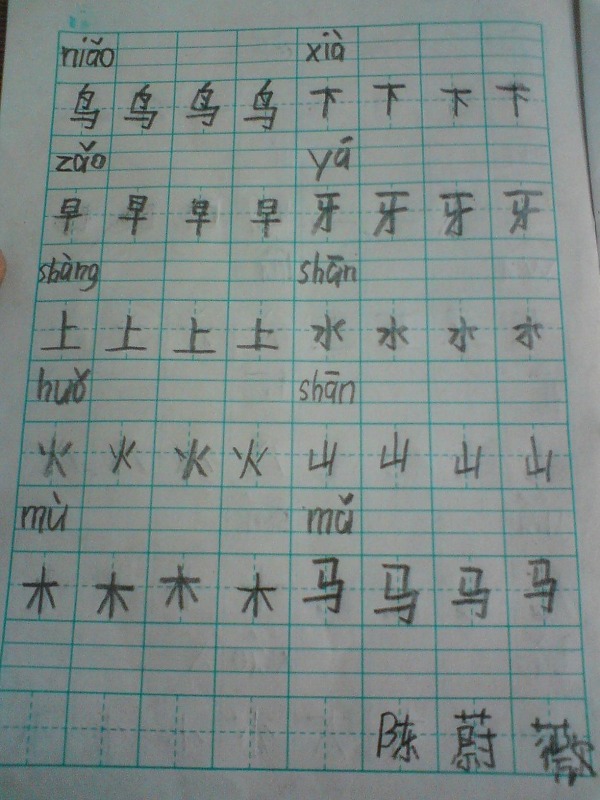 niǎo xià
鸟 鸟 鸟 鸟 下 下 下 下
zǎo yá
早 早 早 早 牙 牙 牙 牙
shàng shān
上 上 上 上 水 水 水 水
huǒ shān
火 火 火 火 山 山 山 山
mù mǎ
木 木 木 木 马 马 马 马
陈 蔚 薇